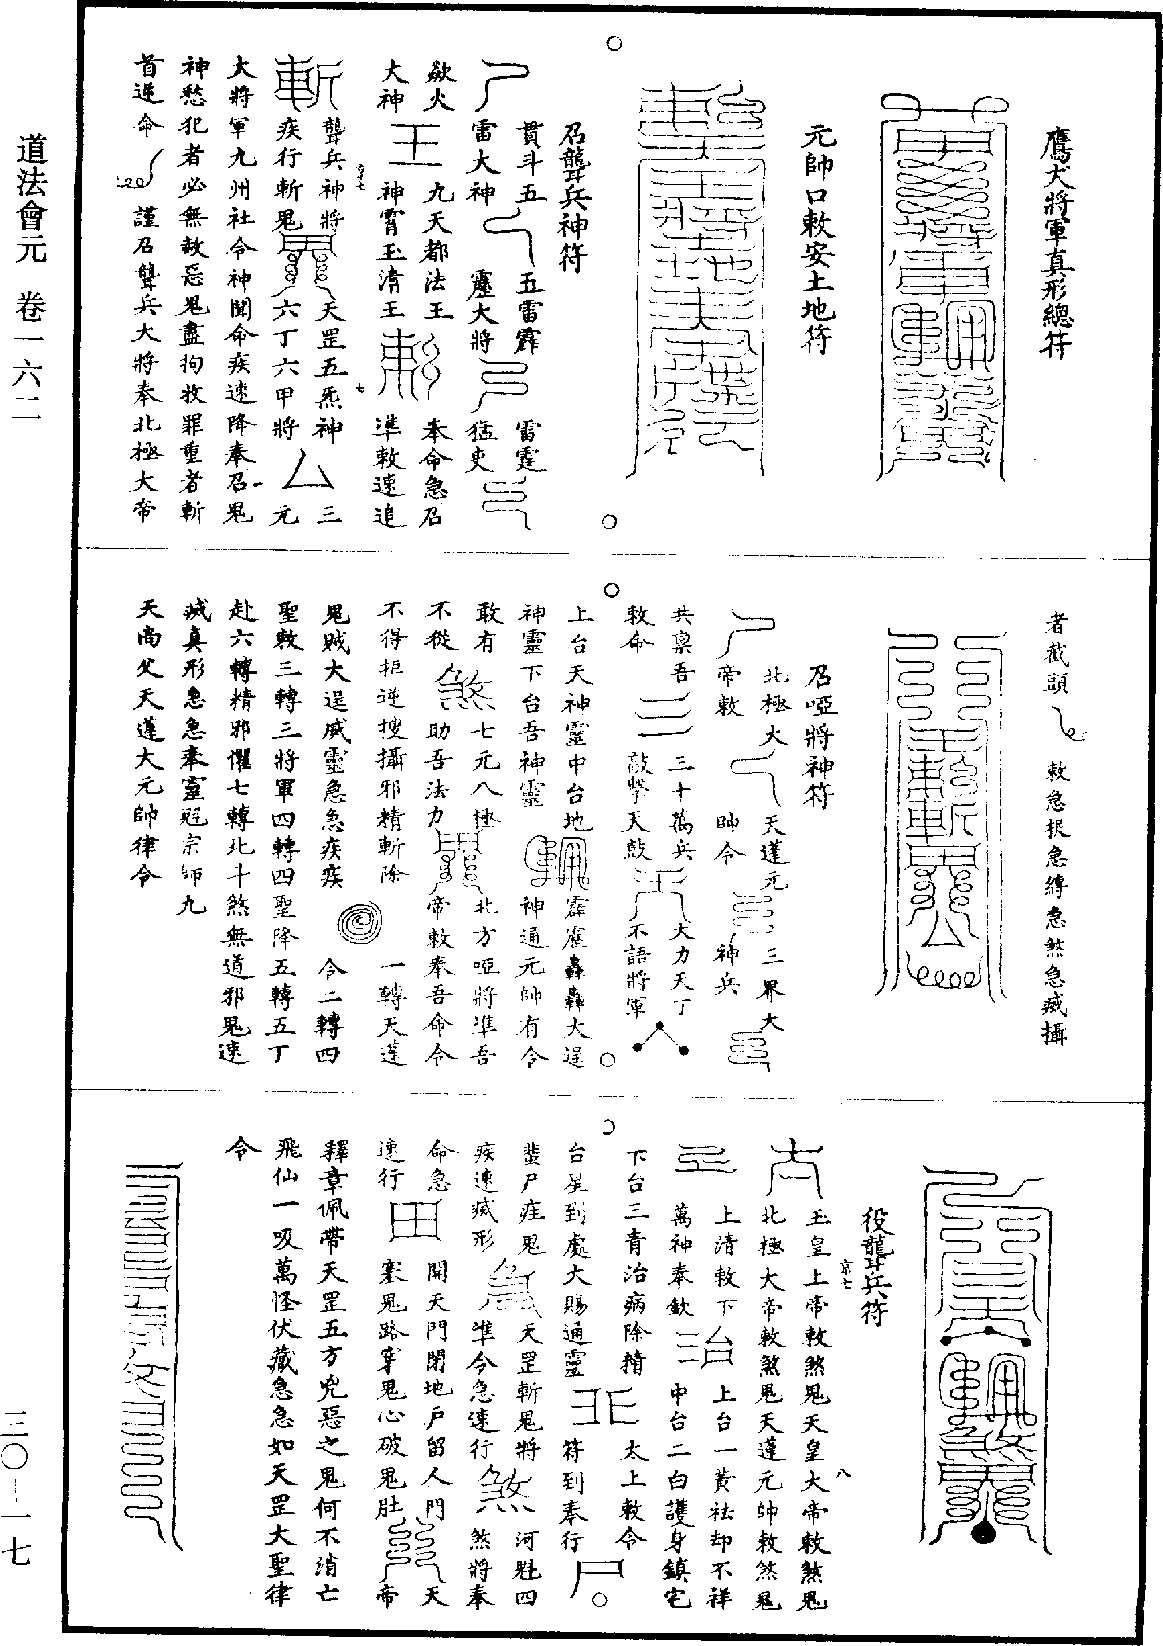 道法會元　卷一六二
三〇—一七
鷹犬將軍真形總符
元帥口敕安土地符
召聾兵神符
貫斗五　五雷霹　雷霆
雷大神　靂大將　猛吏
歘火　九天都法王　奉命急召
大神　神霄玉清王　準敕速追
聾兵神將　天罡五炁神　三
疾行斬鬼　六丁六甲將　元
大將軍九州社令神聞命疾速降奉召鬼
神愁犯者必無赦惡鬼盡拘收罪重者斬
首逆命　謹召聾兵大將奉北極大帝
者截頭　敕急捉急縛急煞急滅攝
召啞將神符
北極大　天蓬元　三界大
帝敕　帥令　神兵
共稟吾　三十萬兵　大力天丁
敕命　敲擊天鼓　不語將軍
上台天神靈中台地　霹靂轟轟大逞
神靈下台吾神靈　神通元帥有令
敢有　七元八極　北方啞將準吾
不從　煞　助吾法力　帝敕奉吾命令
不得拒逆搜攝邪精斬除　一轉天蓬
鬼賊大逞威靈急急疾疾　令二轉四
聖敕三轉三將軍四轉四聖降五轉五丁
赴六轉精邪懼七轉北斗煞無道邪鬼速
滅真形急急奉靈貺宗師九
天尚父天蓬大元帥律令
役聾兵符
京七　八
玉皇上帝敕煞鬼天皇大帝敕煞鬼
北極大帝敕煞鬼天蓬元帥敕煞鬼
上清敕下　治　上台一黃祛却不祥
萬神奉欽　三　中台二白護身鎮宅
下台三青治病除精　太上敕令
台星到處大賜通靈　符到奉行
蜚尸疰鬼　天罡斬鬼將　河魁四
疾速滅形　準令急速行　煞　煞將奉
命急　開天門閉地戶留人門　天
速行　田　塞鬼路穿鬼心破鬼肚　帝
釋章佩帶天罡五方兇惡之鬼何不消亡
飛仙一吸萬怪伏藏急急如天罡大聖律
令